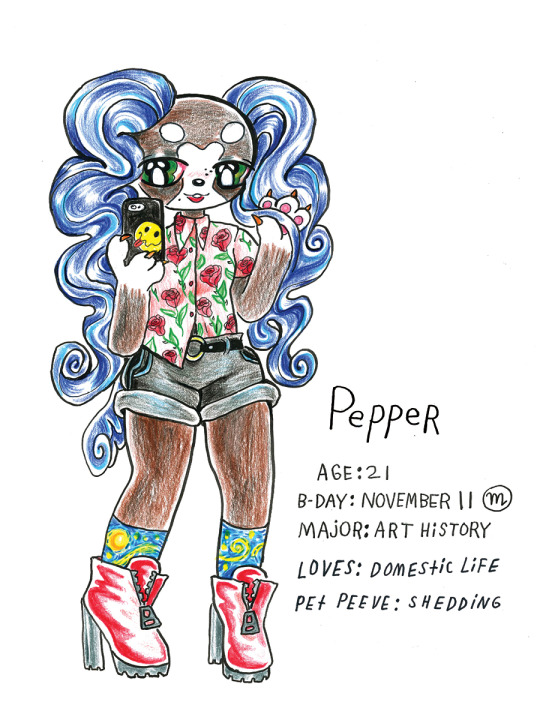 PeppeR
AGE: 21
B-DAY: NOVEMBER 11 ♏
MAJOR: ART HiSTORY
LOVES: DOMEStiC LiFE
PEt PEEVE: SHEDDiNG